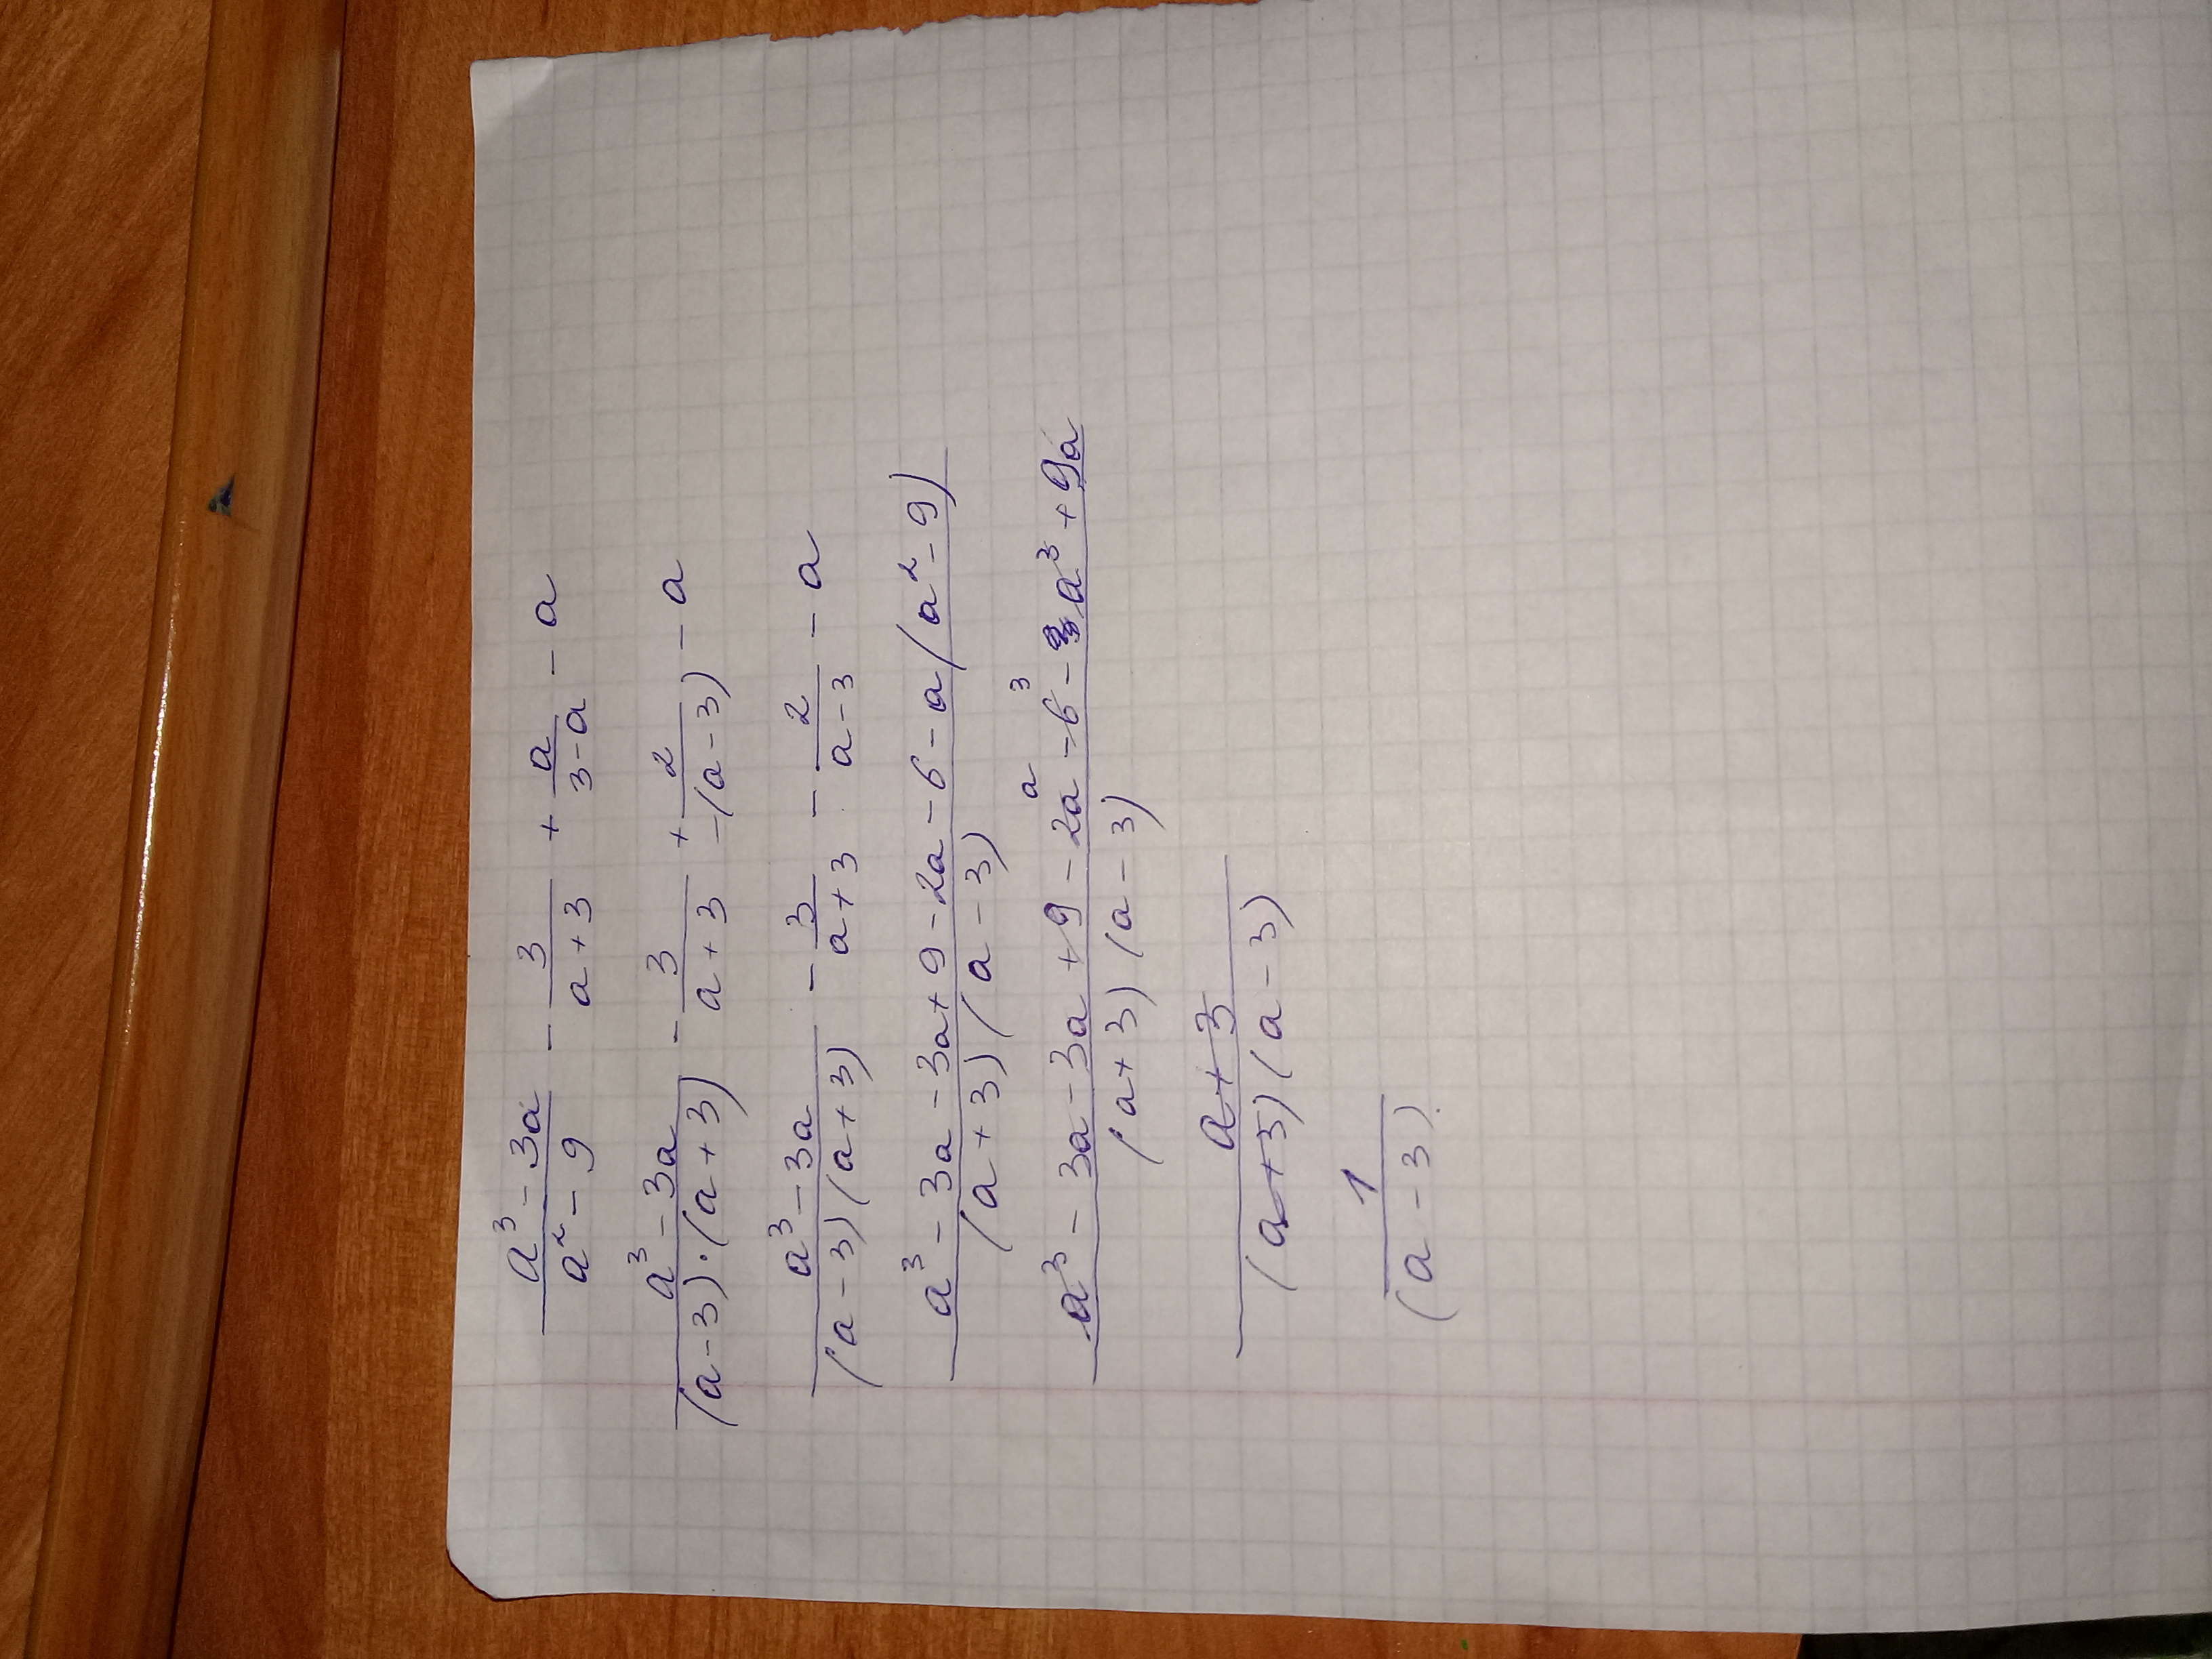 a³ - 3a / a² - 9 - 3 / a + 3 + a / 3 - a - a
a³ - 3a / (a - 3) · (a + 3) - 3 / a + 3 + 2 / -(a - 3) - a
a³ - 3a / (a - 3)(a + 3) - 3 / a + 3 - 2 / a - 3 - a
a³ - 3a - 3a + 9 - 2a - 6 - a(a² - 9) / (a + 3)(a - 3)
a 3
a³ - 3a - 3a + 9 - 2a - 6 - a³ + 9a / (a + 3)(a - 3)
a + 3 / (a + 3)(a - 3)
1 / (a - 3)